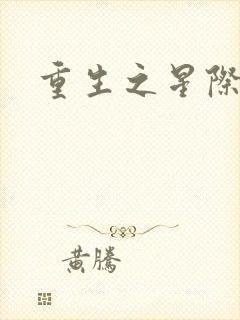 重生之星際
黃騰